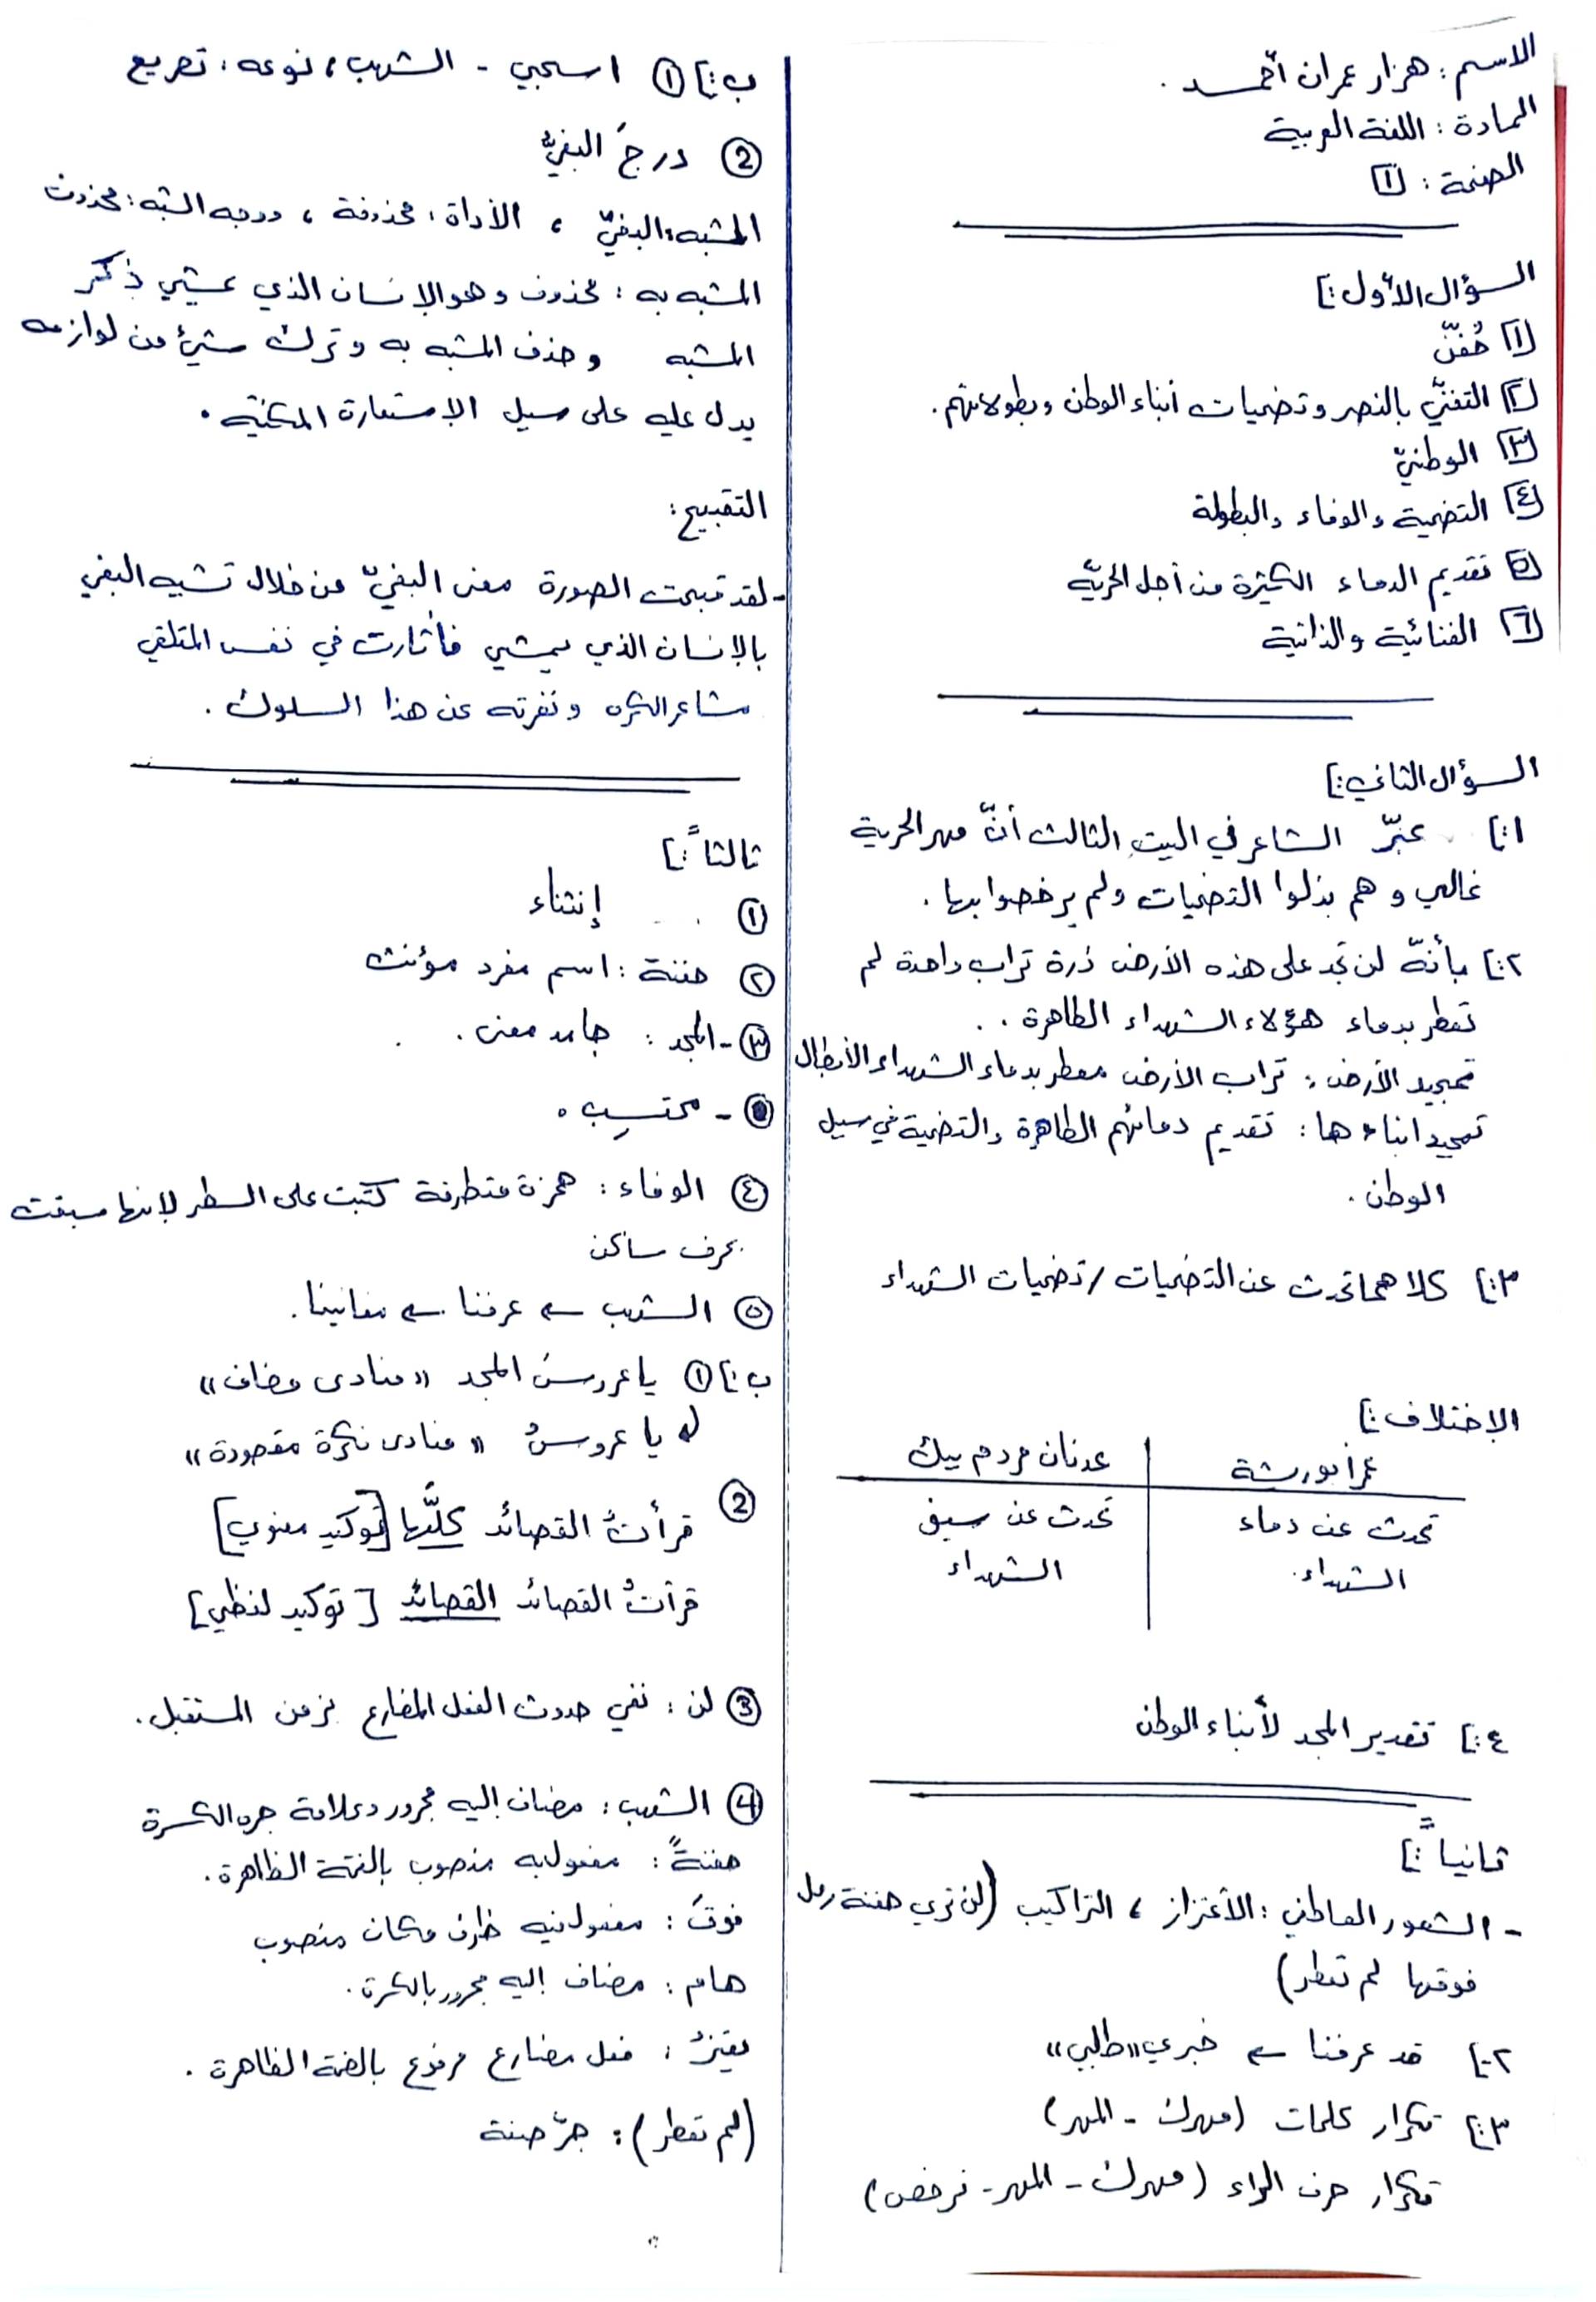 الاسم: هزار عمران أحمد.
المادة: اللغة العربية
الصفحة: ١
السؤال الأول:
١ حُفنّ
٢ التغنّي بالنصر وتضحيات أبناء الوطن وبطولاتهم.
٣ الوطنيّ
٤ التضحية والوفاء والبطولة
٥ تقديم الدماء الكثيرة من أجل الحريّة
٦ الغنائية والذاتية
السؤال الثاني:
١: عبّر الشاعر في البيت الثالث أنّ مهر الحرية
غالي و هم بذلوا التضحيات ولم يرخصوا بها.
٢: بأنّه لن تجد على هذه الأرض ذرة تراب واحدة لم
تعطر بدماء هؤلاء الشهداء الطاهرة..
تمجيد الأرض: تراب الأرض معطر بدماء الشهداء الأبطال
تمجيد ابناءها: تقديم دمائهم الطاهرة والتضحية في سبيل
الوطن.
٣: كلاهما تحدث عن التضحيات / تضحيات الشهداء
الاختلاف:
عمر أبو ريشة
عدنان مردم بيك
تحدث عن دماء
الشهداء.
تحدث عن سيف
الشهداء
٤: تقدير المجد لأبناء الوطن
ثانياً:
- الشعور العاطفي: الأعتزاز، التراكيب (لن تري حفنة رمل
فوقها لم تعطر)
٢- قد عرفنا ← خبري "طلبي"
٣: تكرار كلمات (مهرك - المهر)
تكرار حرف الراء (مهرك - المهر - نرخص)
ب: ① اسحبي - الشهب، نوعه: تصريع
② درجَ البغيُّ
المشبه: البغيّ، الأداة: محذوفة، ووجه الشبه: محذوف
المشبه به: محذوف وهو الإنسان الذي يمشي ذكر
المشبه وحذف المشبه به وترك شيئ من لوازمه
يدل عليه على سبيل الاستعارة المكنيّة.
التقبيح:
- لقد قبحت الصورة معنى البغيّ من خلال تشبيه البغي
بالإنسان الذي يمشي فأثارت في نفس المتلقي
مشاعر الكره ونفرته عن هذا السلوك.
ثالثاً:
① إنشاء
② حفنة: اسم مفرد مؤنث
③ - المجد: جامد معنى.
- محتسِب.
④ الوفاء: همزة متطرفة كتبت على السطر لإنها سبقت
بحرف ساكن
⑤ الشهب ← عرفنا ← مغانينا.
ب: ① يا عروسَ المجد "منادى مضاف"
يا عروسُ "منادى نكرة مقصودة"
② قرأتُ القصائد كلَّها [توكيد معنوي]
قرأتُ القصائد القصائد [توكيد لفظي]
③ لن: نفي حدوث الفعل المضارع بزمن المستقبل.
④ الشهب: مضاف إليه مجرور وعلامة جره الكسرة
حفنةً: مفعول به منصوب بالفتحة الظاهرة.
فوقَ: مفعول فيه ظرف مكان منصوب
هام: مضاف إليه مجرور بالكسرة.
يعتزُ: فعل مضارع مرفوع بالضمة الظاهرة.
(لم تعطر): جرّ صفة